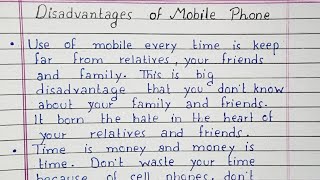 Disadvantages of Mobile Phone
• Use of mobile every time is keep
far from relatives, your friends
and family. This is big
disadvantage that you don't know
about your family and friends.
It born the hate in the heart of
your relatives and friends.
• Time is money and money is
time. Don't waste your time
because of cell phones, don't